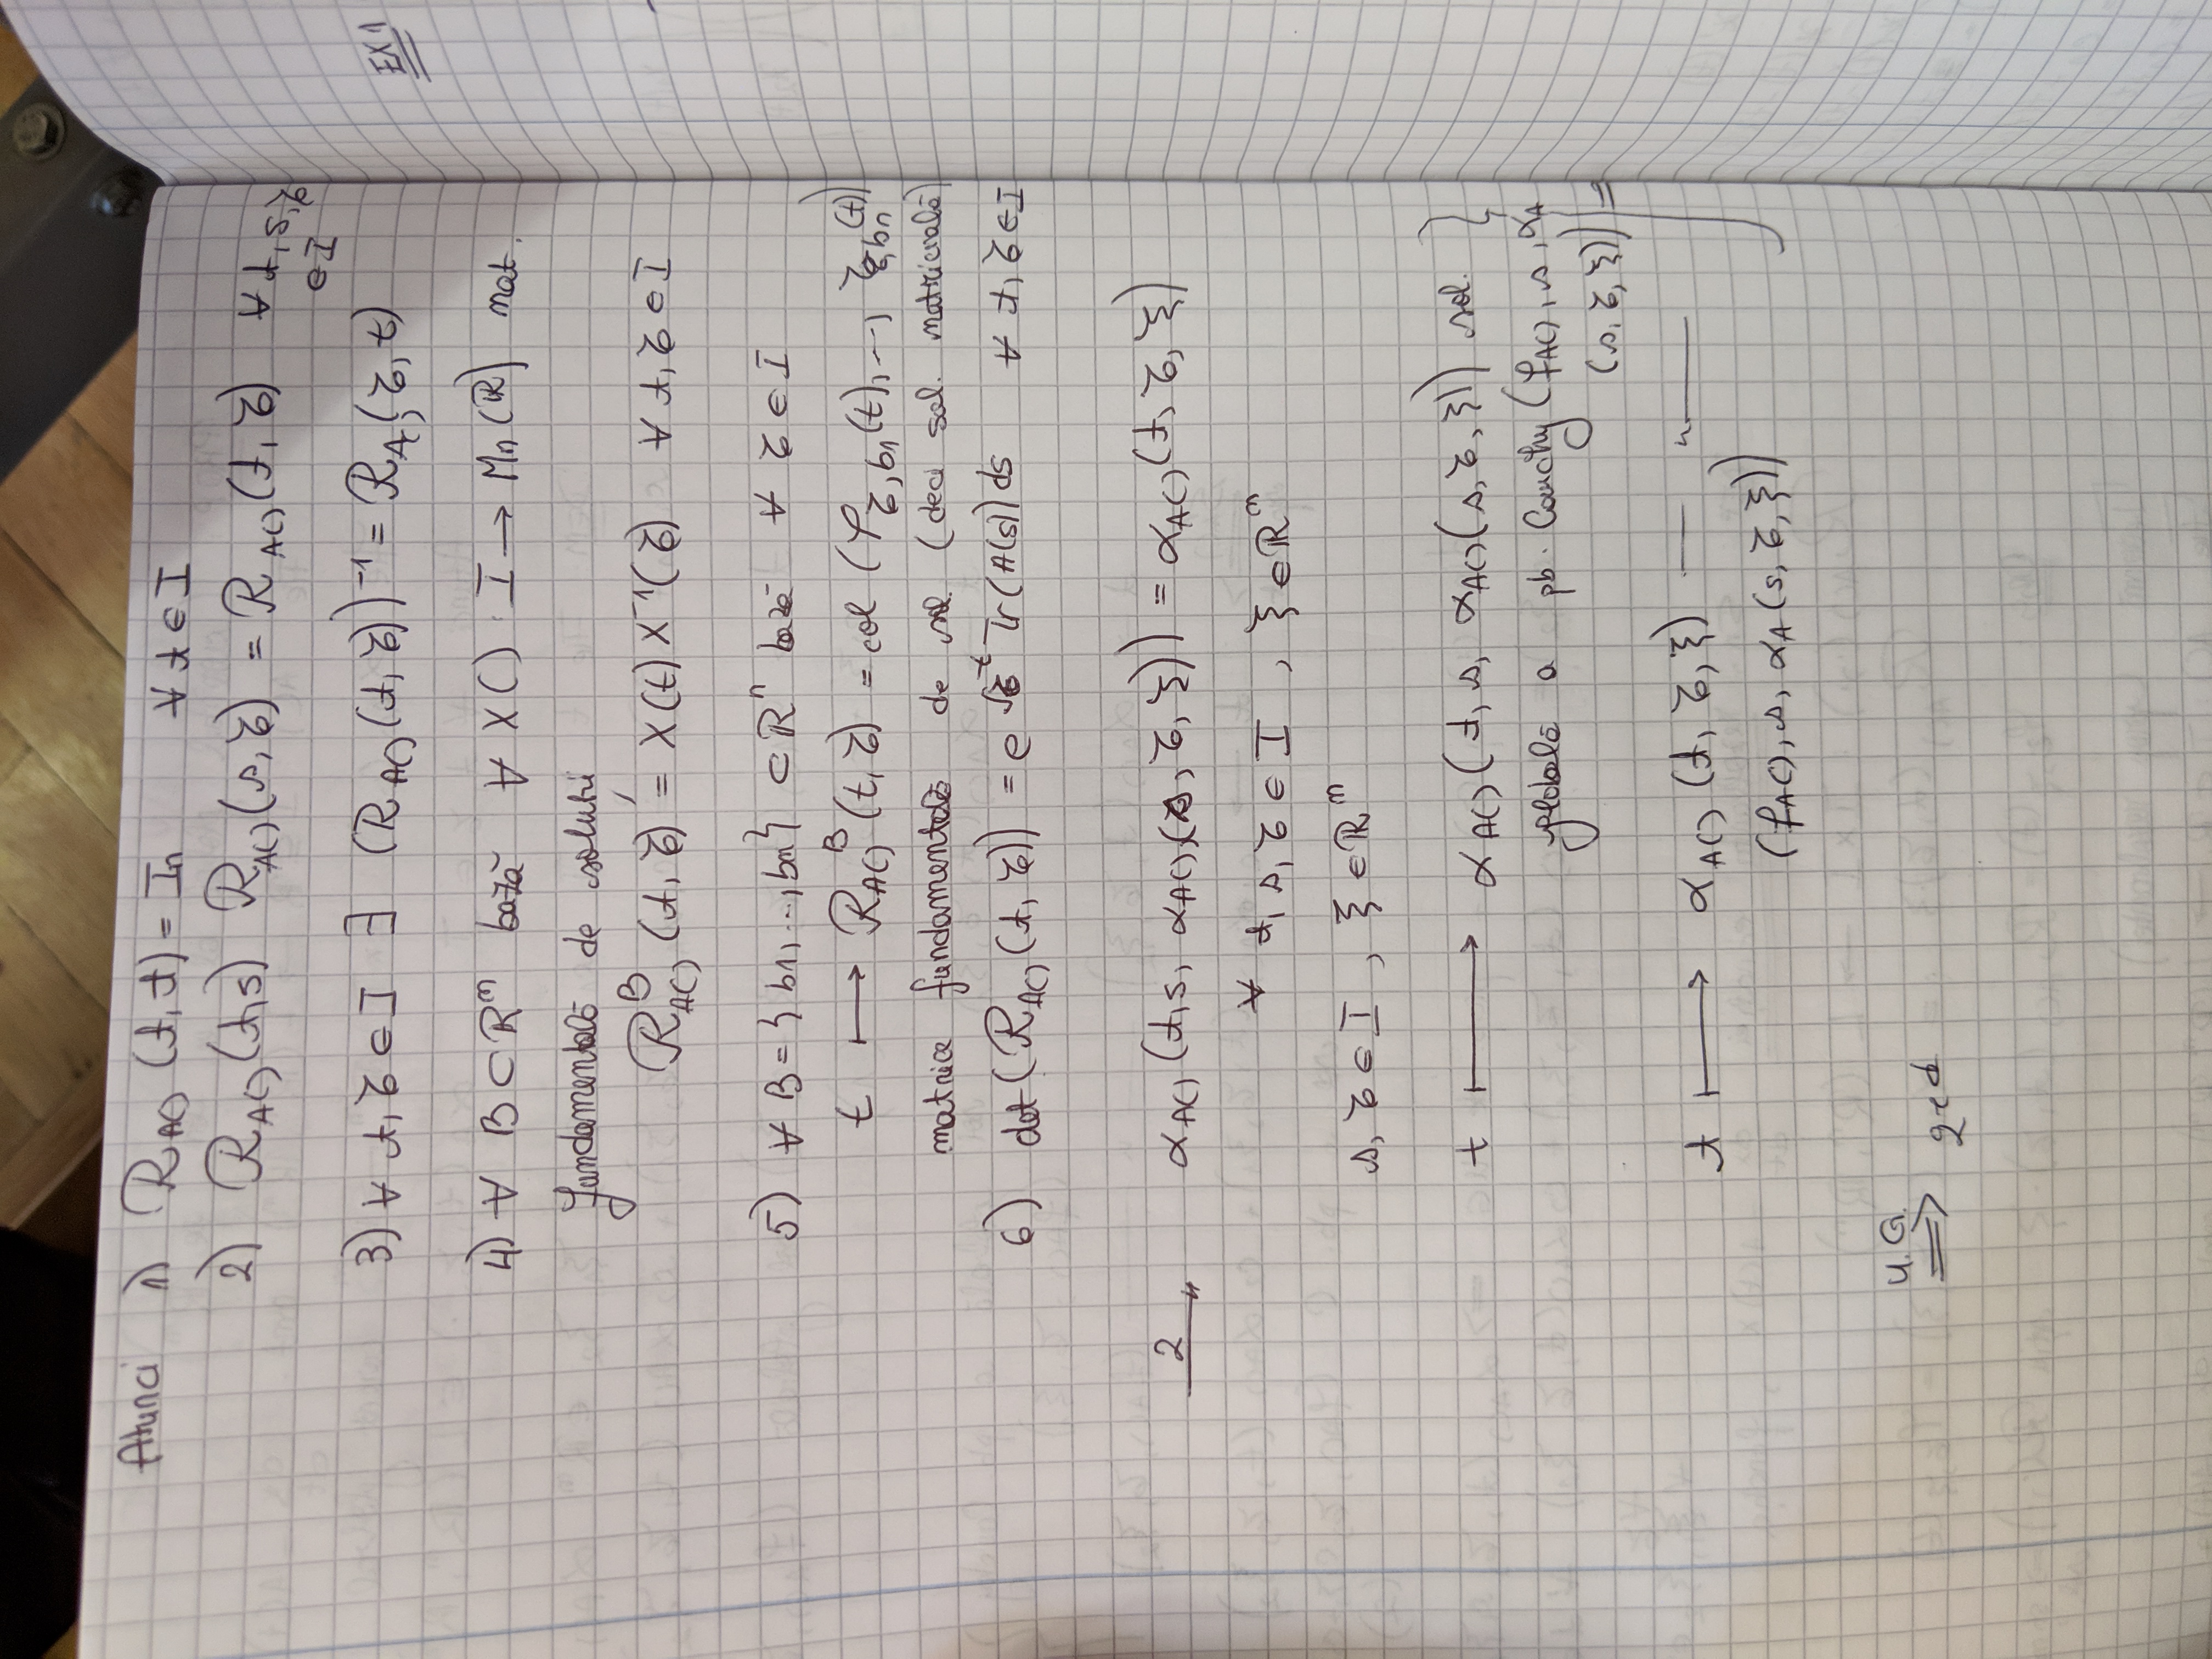 Atunci 1) R_A() (t, t) = In ∀ t ∈ I
2) R_A() (t,s) R_A() (s, τ) = R_A() (t, τ) ∀ t, s, τ
∈ I
3) ∀ t, τ ∈ I ∃ (R_A() (t, τ))^-1 = R_A() (τ, t)
EX 1
4) ∀ B ⊂ R^n bază ∀ X() I → Mn (R) mat.
fundamentală de soluții
R_A()^B (t, τ) = X(t) X^-1(τ) ∀ t, τ ∈ I
5) ∀ B = {b1, ..., bn} ⊂ R^n bază ∀ τ ∈ I
t ↦ R_A()^B (t, τ) = col (φ_τ,b1 (t), ..., τ,bn (t))
matrice fundamentală de sol. (deci sol. matriceală)
6) det (R_A() (t, τ)) = e^∫τ^t Tr (A(s)) ds ∀ t, τ ∈ I
2 α_A() (t,s, α_A() (s, τ, ξ)) = α_A() (t, τ, ξ)
∀ t, s, τ ∈ I , ξ ∈ R^n
s, τ ∈ I , ξ ∈ R^n
t ↦ α_A() (t, s, α_A() (s, τ, ξ)) sol. }
globală a pb. Cauchy (f_A(), s, α_A
(s, τ, ξ)) =
t ↦ α_A() (t, τ, ξ) — " —
(f_A(), s, α_A (s, τ, ξ))
U.G.
⟹ qed